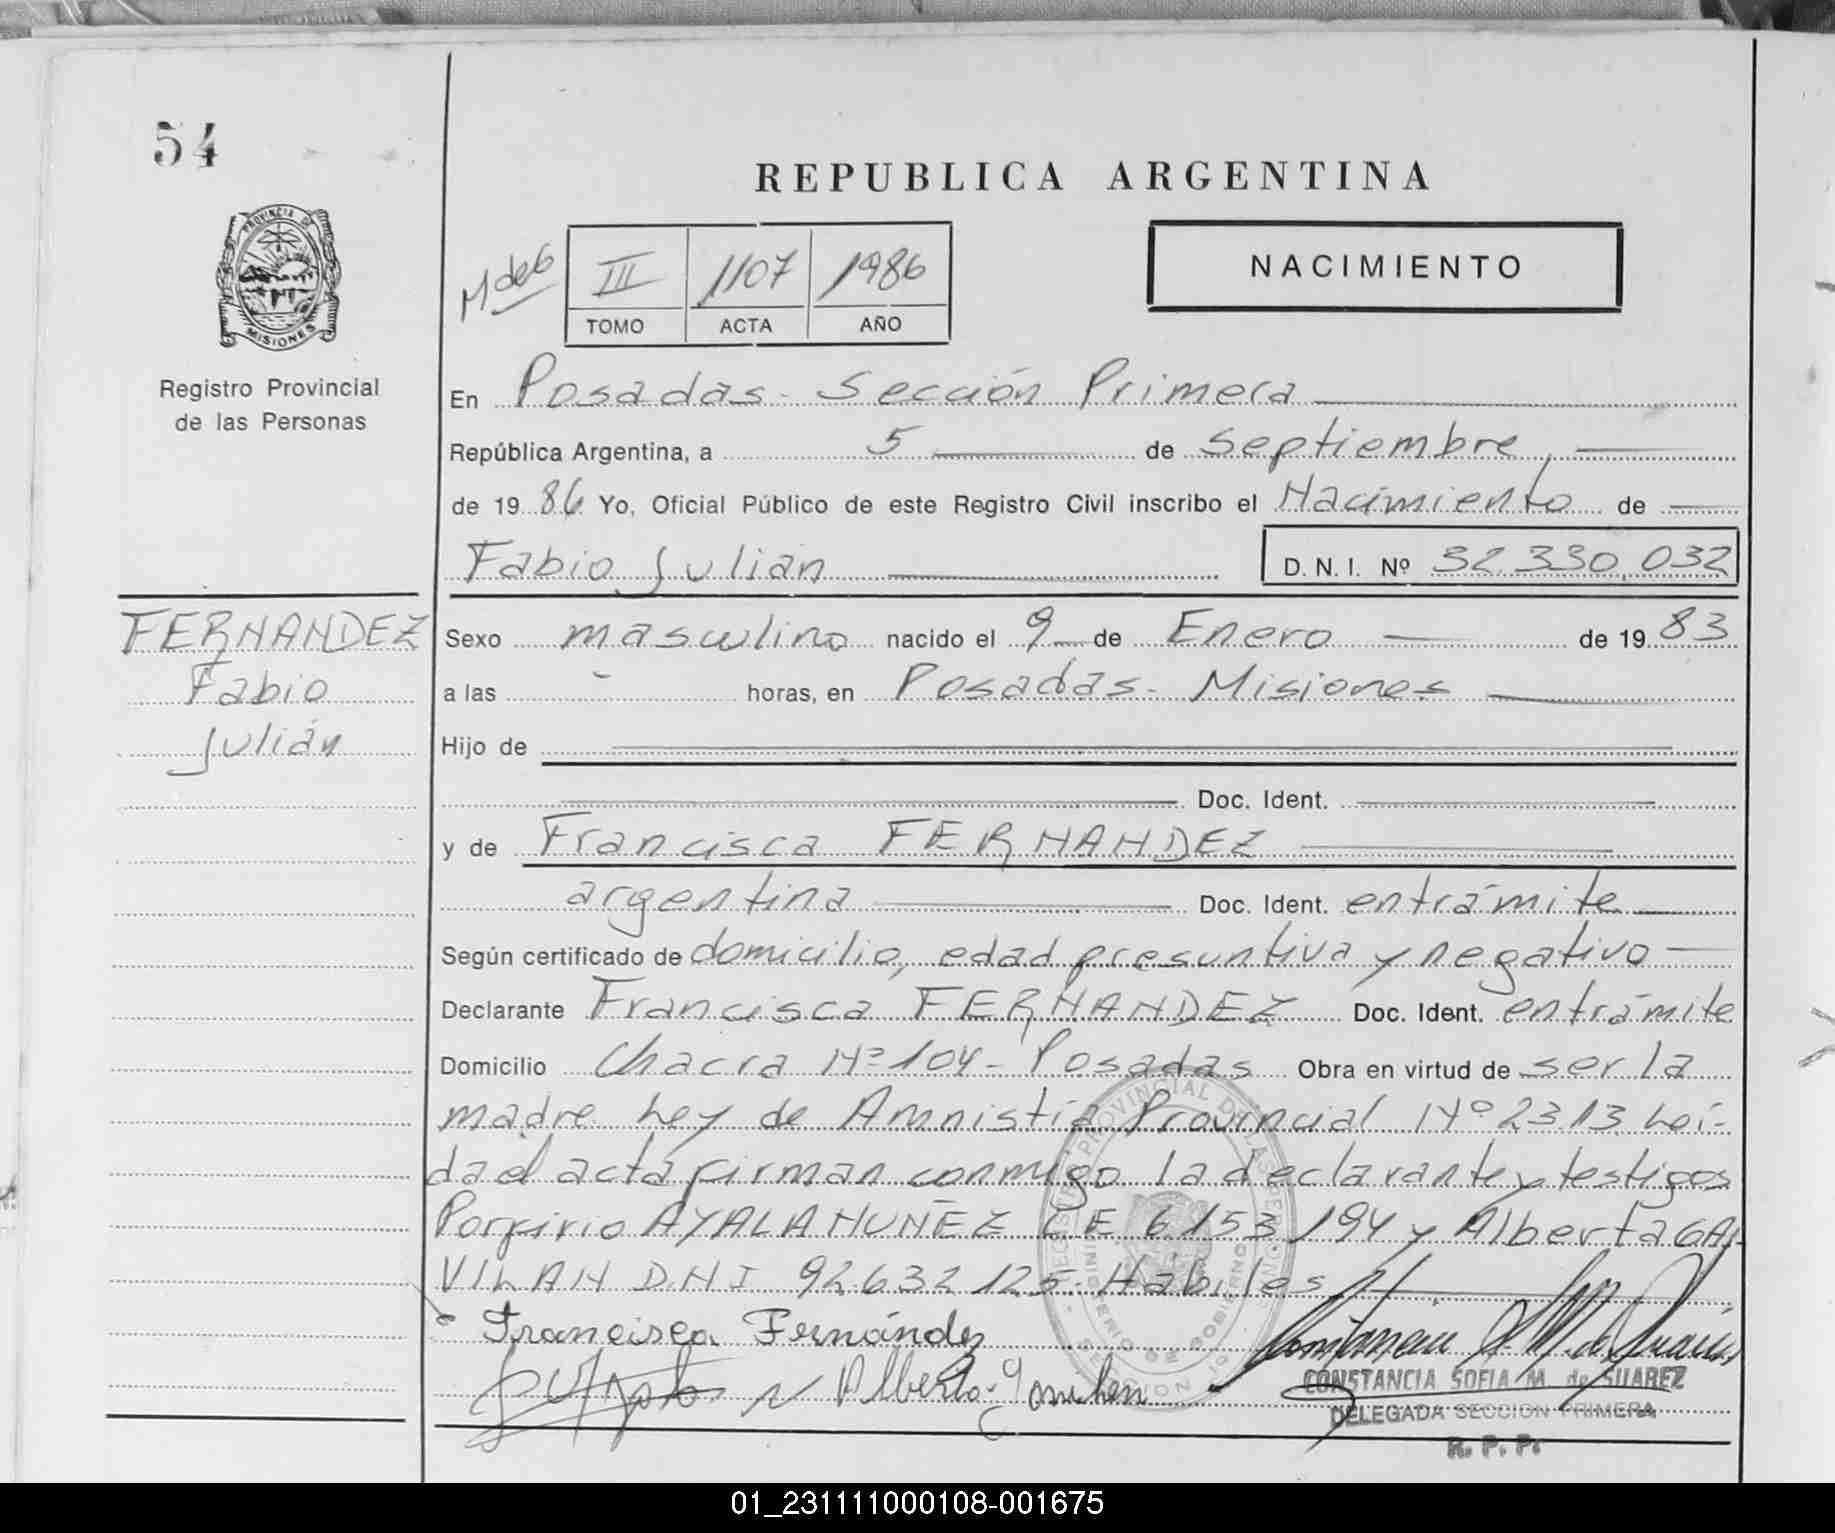 54
PROVINCIA DE
MISIONES
Registro Provincial
de las Personas
REPUBLICA ARGENTINA
M de 6
III 1107 1986
TOMO ACTA AÑO
NACIMIENTO
En Posadas - Sección Primera
República Argentina, a 5 de Septiembre,
de 1986 Yo, Oficial Público de este Registro Civil inscribo el Nacimiento de
Fabio Julián D. N. I. Nº 32.330.032
FERNANDEZ
Fabio
Julián
Sexo masculino nacido el 9 de Enero de 1983
a las - horas, en Posadas - Misiones
Hijo de
Doc. Ident.
y de Francisca FERNANDEZ
argentina Doc. Ident. entrámite
Según certificado de domicilio, edad presuntiva y negativo
Declarante Francisca FERNANDEZ Doc. Ident. entrámite
Domicilio Chacra Nº 104 - Posadas Obra en virtud de ser la
madre. Ley de Amnistía Provincial Nº 2313. Leí-
da el acta firman conmigo la declarante y testigos
Porfirio AYALA NUÑEZ CE 6153194 y Alberta GAI-
VILAN D.N.I 92.632.125. Hábiles
Francisca Fernández
CONSTANCIA SOFIA M. de SUAREZ
DELEGADA SECCION PRIMERA
R. P. P.
REGISTRO PROVINCIAL DE LAS PERSONAS
MINISTERIO DE GOBIERNO
MISIONES
01_231111000108-001675